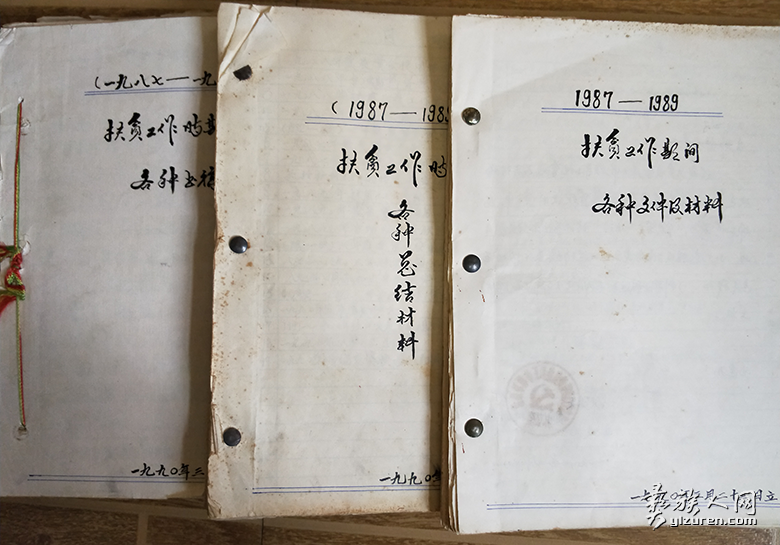 (一九八七—一九
扶贫工作时
各种
一九九〇年三
(1987—198
扶贫工作时
各种总结材料
一九九〇年
1987—1989
扶贫工作期间
各种文件及材料
一九九〇年三月二十一日立
彝族人网
yizuren.com